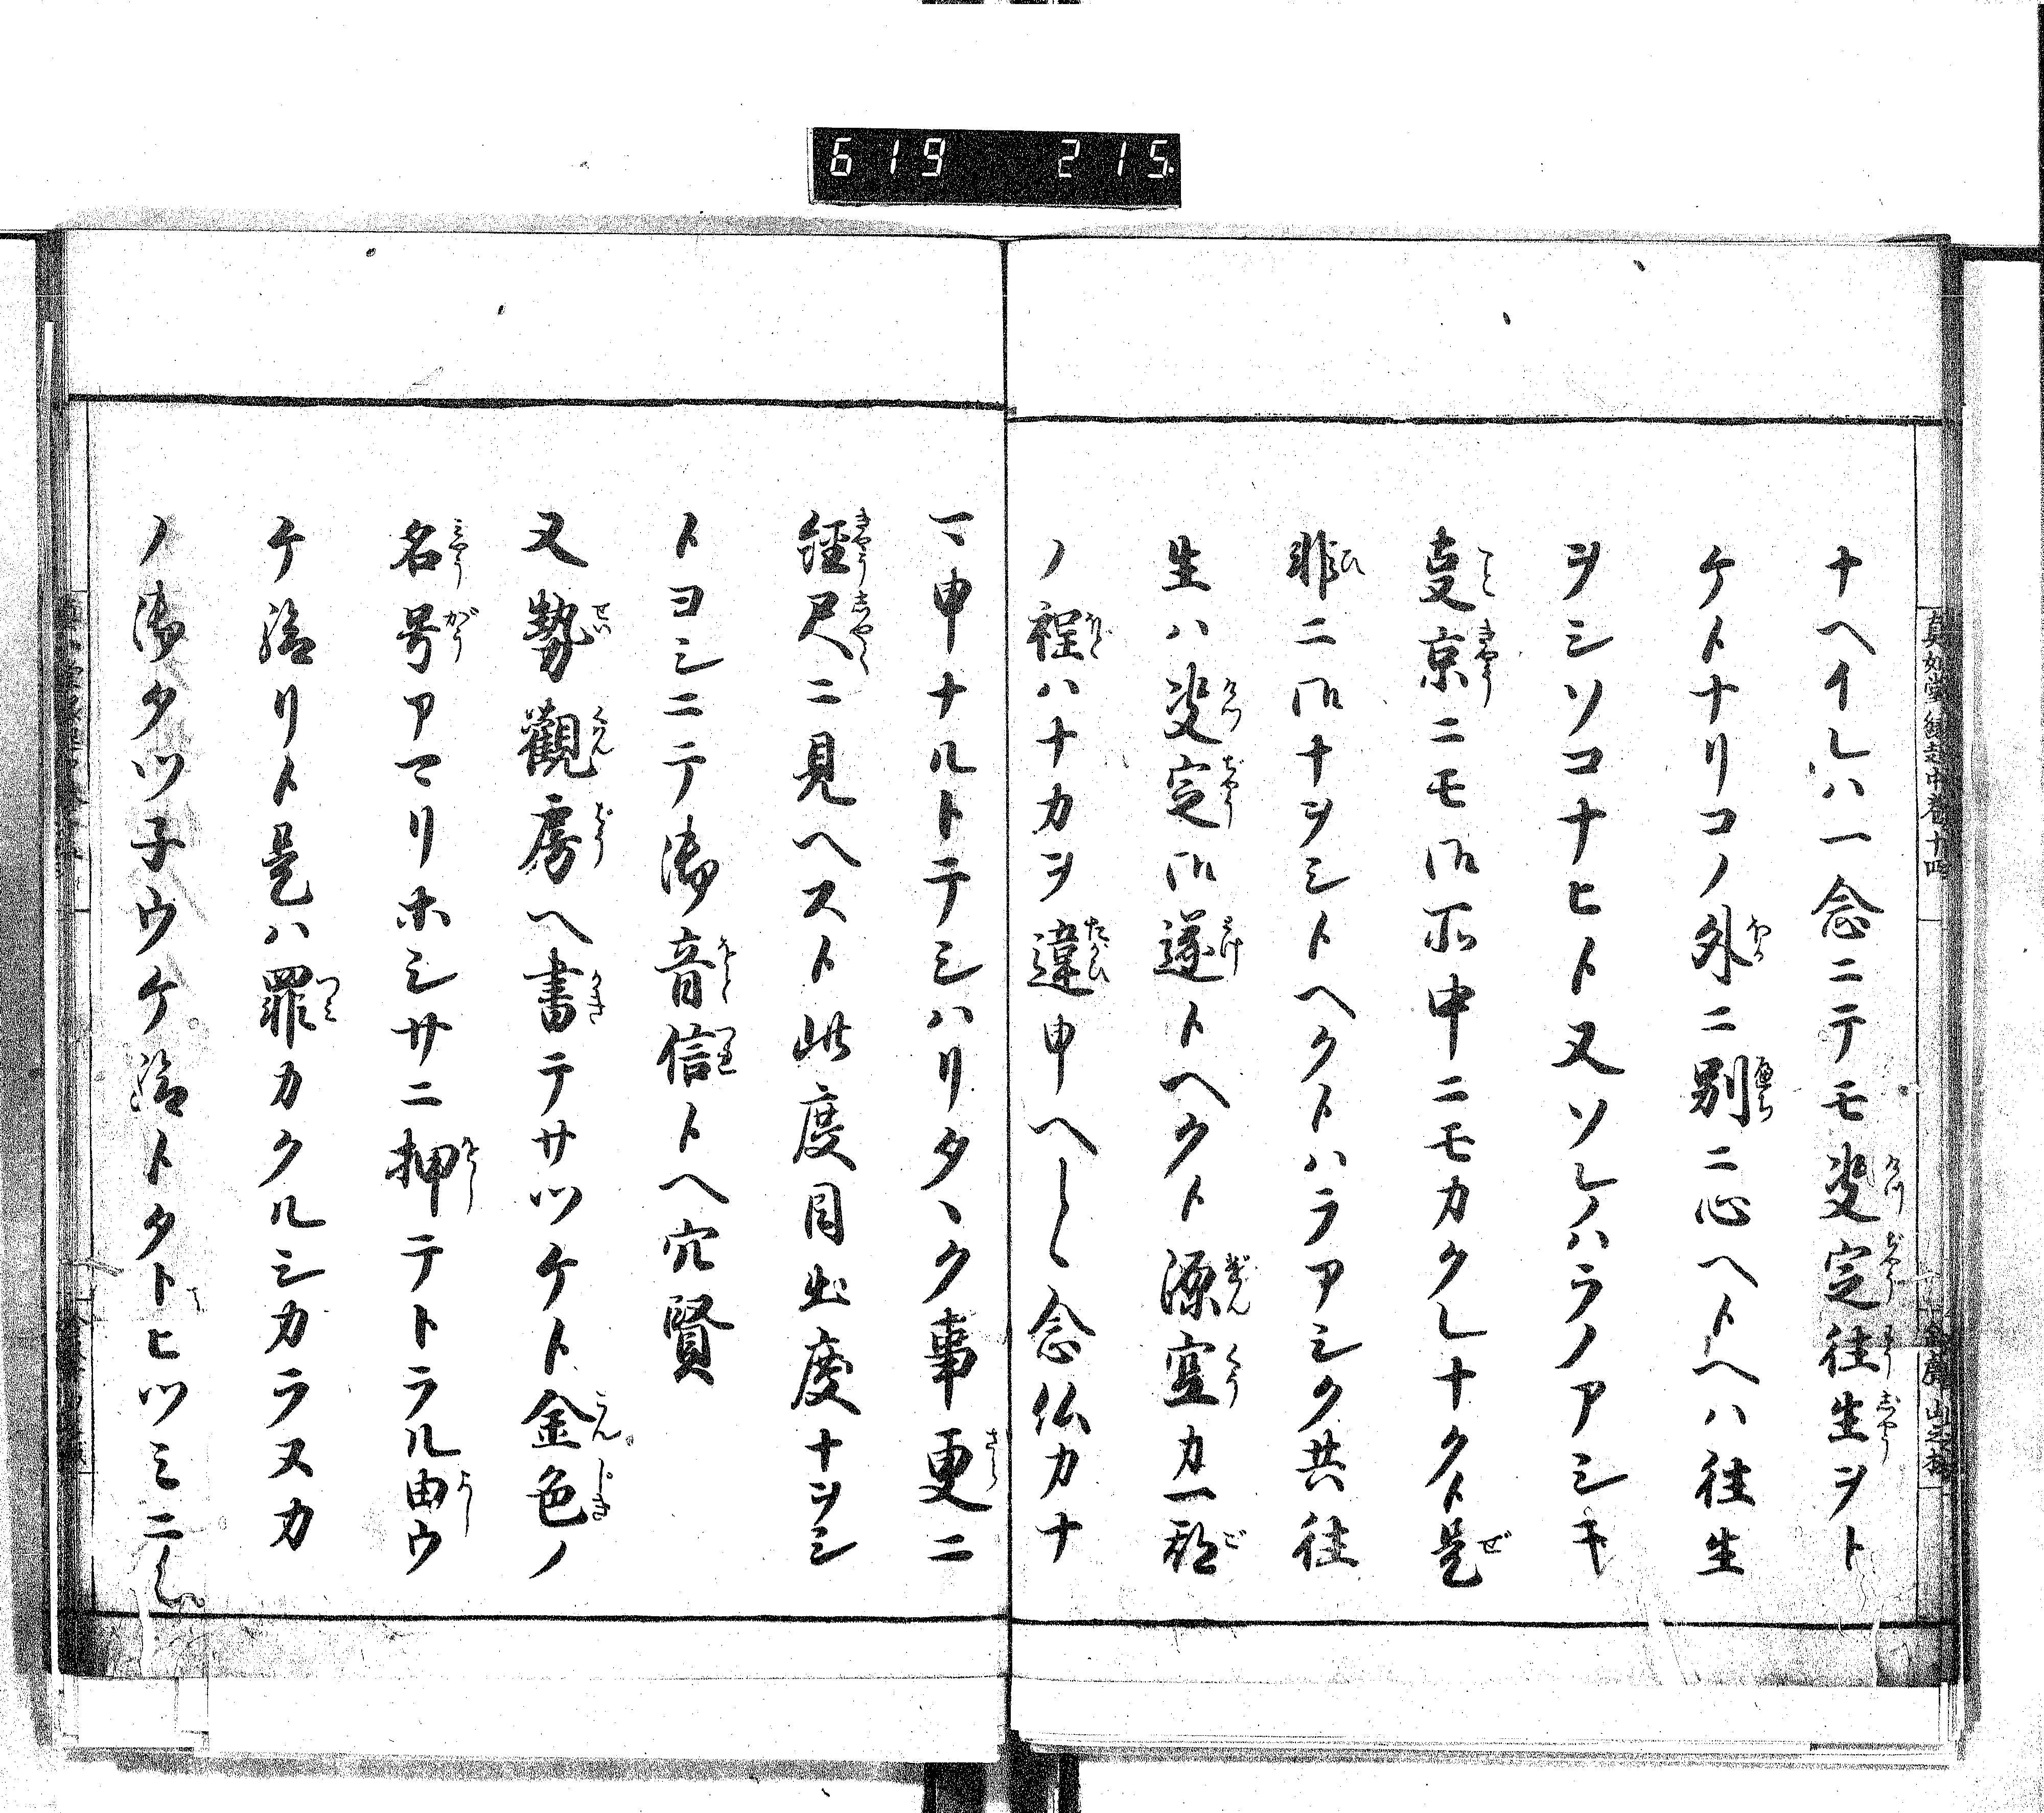 619 215
真如堂縁起中巻 十四
ナヘイレハ一念ニテモ决定往生ヲト
ケトナリコノ外ニ別ニ心ヘトヘハ往生
ヲシソコナヒト又ソレハラノアシキ
夏京ニモ  中ニモカクレナクト是
非ニ 十ヲシトヘクトハラアシク共往
生ハ决定 遂トヘクト源空カ一期
ノ程ハナカヲ違申ヘ  念仏カナ
マ申ナルトテシハリタヽク事更ニ
經尺ニ見ヘスト此度目出度ナヲシ
トヨシニテ御音信トヘ穴賢
又勢觀房ヘ書テサツケト金色ノ
名号アマリホシサニ押テトラル由ウ
ケ給リト是ハ罪カクルシカラヌカ
ノ御タツ子ウケ給トタトヒツミニ